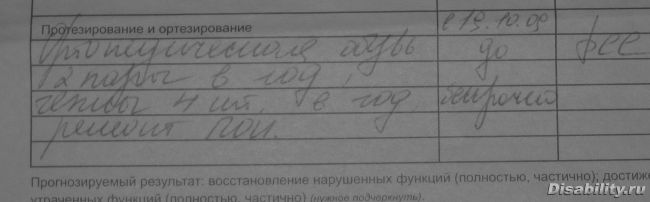 Протезирование и ортезирование
с 19.10.09
Ортопедическая обувь до ФСС
2 пары в год,
чехлы 4 шт. в год, бессрочно
ремонт ПОИ.
Прогнозируемый результат: восстановление нарушенных функций (полностью, частично); достиже
утраченных функций (полностью, частично) (нужное подчеркнуть).
Disability.ru